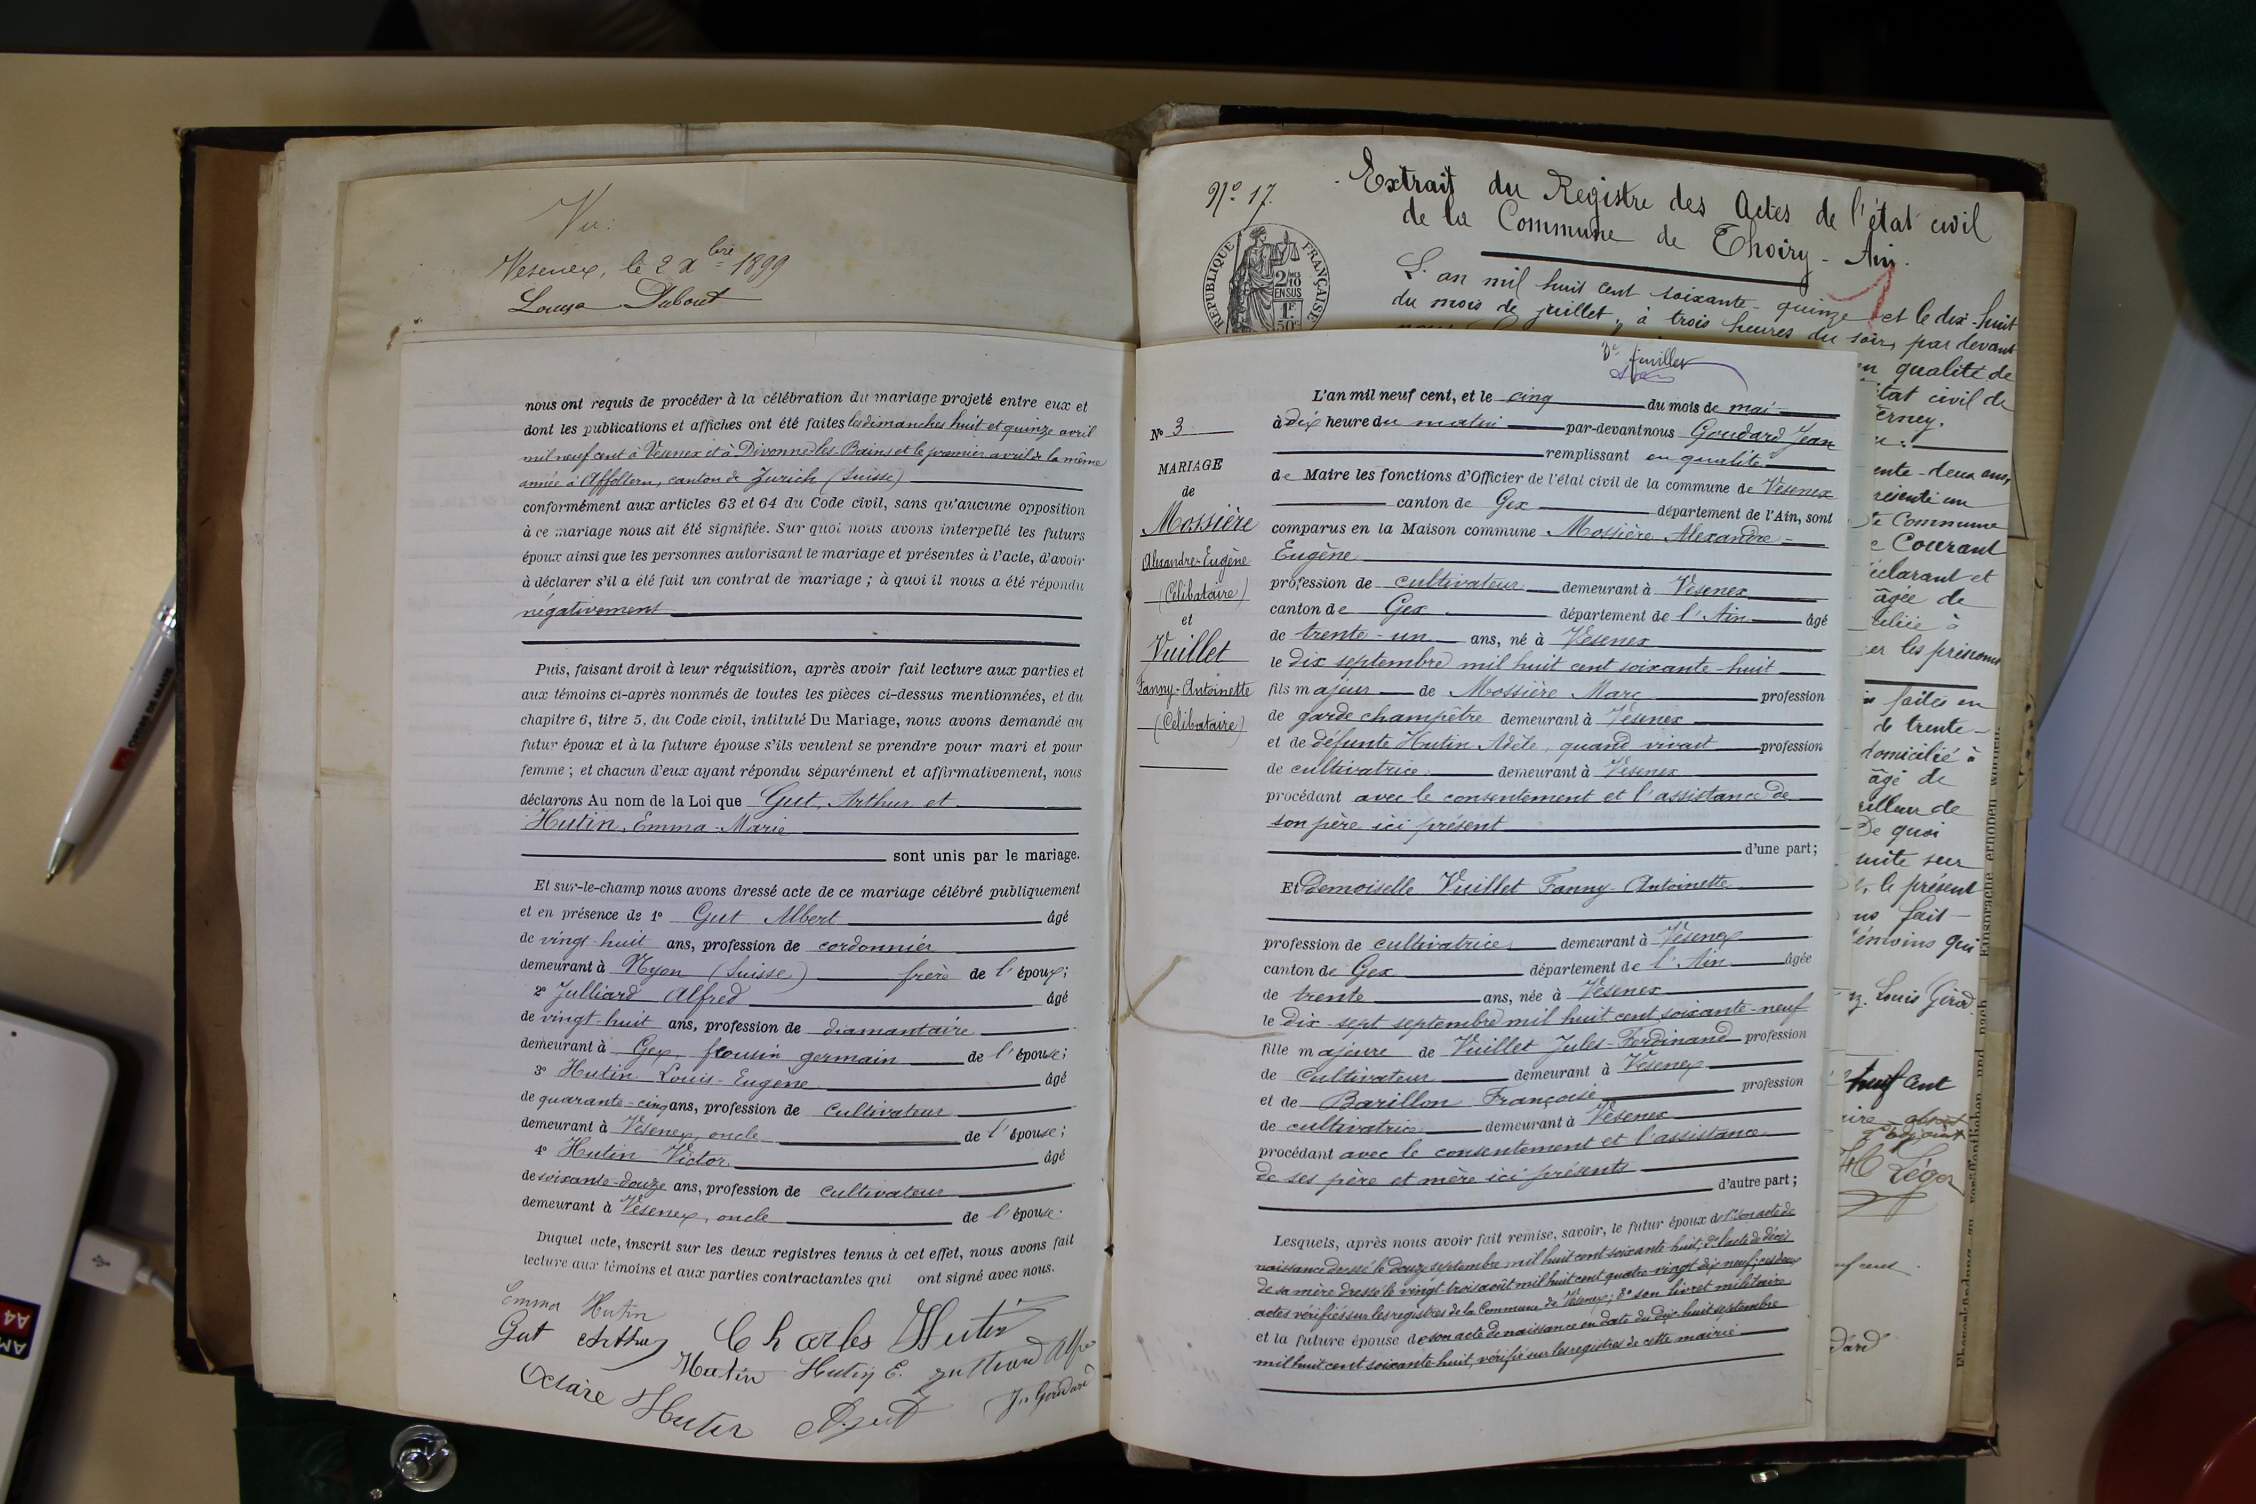 Vu:
Vesenex, le 2 Xbre 1899
Louis Dubout
nous ont requis de procéder à la célébration du mariage projeté entre eux et
dont les publications et affiches ont été faites les dimanches huit et quinze avril
mil neuf cent à Vésenex et à Divonne-les-Bains et le premier avril de la même
année à Affoltern, canton de Zurich (Suisse)
conformément aux articles 63 et 64 du Code civil, sans qu'aucune opposition
à ce mariage nous ait été signifiée. Sur quoi nous avons interpellé les futurs
époux ainsi que les personnes autorisant le mariage et présentes à l'acte, d'avoir
à déclarer s'il a été fait un contrat de mariage ; à quoi il nous a été répondu
négativement
Puis, faisant droit à leur réquisition, après avoir fait lecture aux parties et
aux témoins ci-après nommés de toutes les pièces ci-dessus mentionnées, et du
chapitre 6, titre 5, du Code civil, intitulé Du Mariage, nous avons demandé au
futur époux et à la future épouse s'ils veulent se prendre pour mari et pour
femme ; et chacun d'eux ayant répondu séparément et affirmativement, nous
déclarons Au nom de la Loi que Gut, Arthur et
Hutin, Emma-Marie
sont unis par le mariage.
Et sur-le-champ nous avons dressé acte de ce mariage célébré publiquement
et en présence de 1° Gut Albert âgé
de vingt-huit ans, profession de cordonnier
demeurant à Nyon (Suisse) frère de l'époux;
2° Julliard Alfred âgé
de vingt-huit ans, profession de diamantaire
demeurant à Gex, cousin germain de l'épouse;
3° Hutin Louis-Eugène âgé
de quarante-cinq ans, profession de cultivateur
demeurant à Vésenex, oncle de l'épouse;
4° Hutin Victor âgé
de soixante-douze ans, profession de cultivateur
demeurant à Vésenex, oncle de l'épouse.
Duquel acte, inscrit sur les deux registres tenus à cet effet, nous avons fait
lecture aux témoins et aux parties contractantes qui ont signé avec nous.
Emma Hutin
Gut Arthur Charles Hutin
Hutin Hutin E.
Octavie Hutin A. Gut Jn Goudard
N° 17.
Extrait du Registre des Actes de l'état civil
de la Commune de Thoiry - Ain.
RÉPUBLIQUE FRANÇAISE
2/10 EN SUS
1F 50c
L'an mil huit cent soixante-quinze et le dix-huit
du mois de juillet, à trois heures du soir, par devant
en qualité de
état civil de
3e feuillet
L'an mil neuf cent, et le cinq du mois de mai
à dix heure du matin par-devant nous Goudard Jean
remplissant en qualité
de Maire les fonctions d'Officier de l'état civil de la commune de Vésenex
canton de Gex département de l'Ain, sont
comparus en la Maison commune Mossière Alexandre-
Eugène
profession de cultivateur demeurant à Vésenex
canton de Gex département de l'Ain âgé
de trente-un ans, né à Vésenex
le dix septembre mil huit cent soixante-huit
fils majeur de Mossière Marc profession
de garde champêtre demeurant à Vésenex
et de défunte Hutin Adèle, quand vivait profession
de cultivatrice demeurant à Vésenex
procédant avec le consentement et l'assistance de
son père ici présent
d'une part;
Et Demoiselle Vuillet Fanny-Antoinette
profession de cultivatrice demeurant à Vésenex
canton de Gex département de l'Ain âgée
de trente ans, née à Vésenex
le dix-sept septembre mil huit cent soixante-neuf
fille majeure de Vuillet Jules-Ferdinand profession
de cultivateur demeurant à Vésenex
et de Barillon Françoise profession
de cultivatrice demeurant à Vésenex
procédant avec le consentement et l'assistance
de ses père et mère ici présents
d'autre part;
Lesquels, après nous avoir fait remise, savoir, le futur époux de 1° son acte de
naissance dressé le douze septembre mil huit cent soixante-huit; 2° l'acte de décès
de sa mère dressé le vingt trois août mil huit cent quatre-vingt dix neuf; ces deux
actes vérifiés sur les registres de la Commune de Vésenex; 3° son livret militaire
et la future épouse de son acte de naissance en date du dix-huit septembre
mil huit cent soixante-huit, vérifié sur les registres de cette mairie
N° 3
MARIAGE
de
Mossière
Alexandre-Eugène
(Célibataire)
et
Vuillet
Fanny-Antoinette
(Célibataire)
ente-deux ans,
présenté un
Commune
Courant
déclarant et
âgée de
er les prénoms
faites en
de trente-
domicilié à
âgé de
De quoi
suite sur
le présent
fait
témoins qui
Louis Girod
neuf cent
Léger
Einsprache erhoben worden.
A4